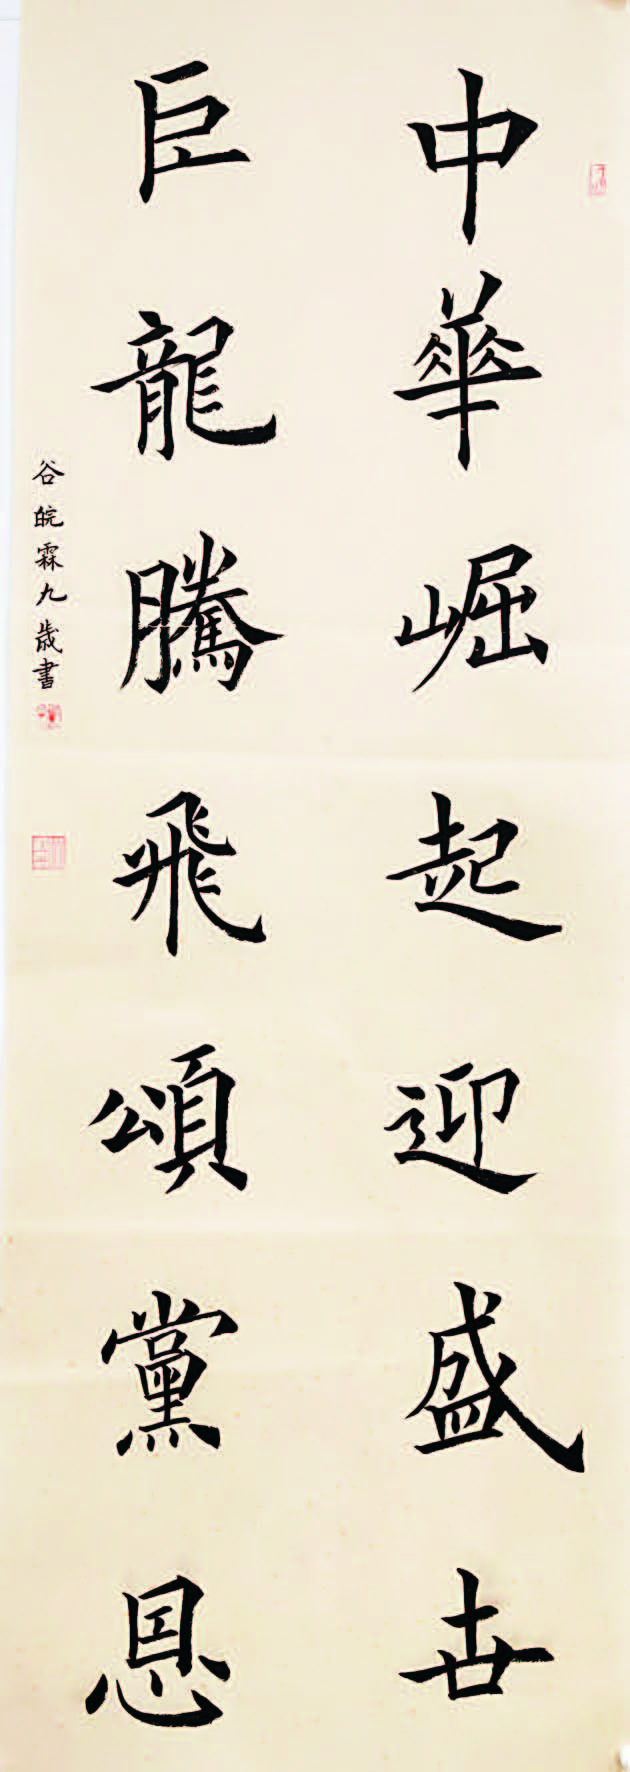 中華崛起迎盛世
巨龍騰飛頌黨恩
谷皖霖九歲書